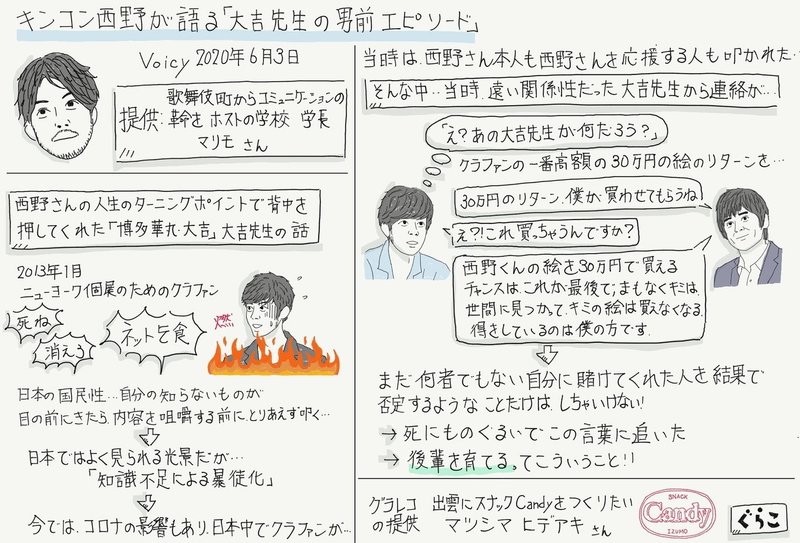 キンコン西野が語る「大吉先生の男前エピソード」
Voicy 2020年6月3日
提供:
歌舞伎町からコミュニケーションの
革命を ホストの学校 学長
マリモ さん
西野さんの人生のターニングポイントで背中を
押してくれた「博多華丸・大吉」大吉先生の話
2013年1月
ニューヨーク個展のためのクラファン
死ね
消えろ
ネット乞食
燃
日本の国民性…自分の知らないものが
目の前にきたら、内容を咀嚼する前に、とりあえず叩く…
日本ではよく見られる光景だが…
「知識不足による暴徒化」
今では、コロナの影響もあり、日本中でクラファンが…
当時は、西野さん本人も西野さんを応援する人も叩かれた…
そんな中…当時、遠い関係性だった大吉先生から連絡が…
「え?あの大吉先生が何だろう?」
クラファンの一番高額の30万円の絵のリターンを…
30万円のリターン、僕が買わせてもらうね
え?!これ買っちゃうんですか?
西野くんの絵を30万円で買える
チャンスは、これが最後で、まもなくキミは、
世間に見つかって、キミの絵は買えなくなる。
得をしているのは僕の方です。
まだ何者でもない自分に賭けてくれた人を結果で
否定するようなことだけは、しちゃいけない!
→ 死にものぐるいでこの言葉に追いた
→ 後輩を育てるってこういうこと!!
グラレコ
の提供
出雲にスナックCandyをつくりたい
マツシマ ヒデアキ さん
SNACK
Candy
IZUMO
ぐらこ